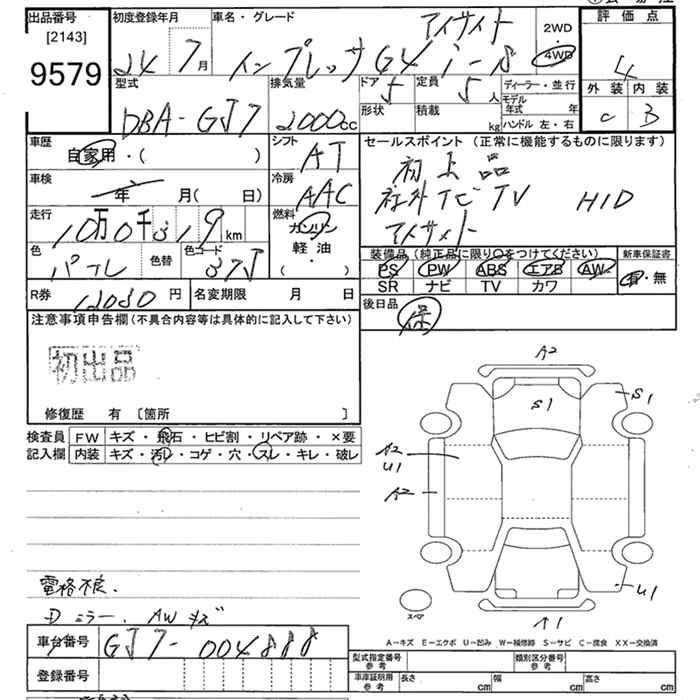 出品番号
[2143]
9579
初度登録年月
24 7月
車名・グレード
アイサイト
インプレッサG4 i-S
2WD
4WD
評価点
4
外装 内装
C B
型式
DBA-GJ7
排気量
2000cc
ドア
5
定員
5人
形状
積載
kg
ディーラー・並行
モデル年式 年
ハンドル 左・右
車歴
自家用・( )
シフト
AT
車検
年 月( 日)
冷房
AAC
走行
10万0千319km
燃料
ガソリン
軽・油
( ・ )
色
パール
色替
色コード
37J
R券
12030円
名変期限 月 日
セールスポイント(正常に機能するものに限ります)
初出品
社外ナビTV HID
アイサイト
装備品(純正品に限り○をつけてください)
PS PW ABS エアB AW
SR ナビ TV カワ
新車保証書
有・無
後日品
保
注意事項申告欄(不具合内容等は具体的に記入して下さい)
初出品
修復歴 有 [箇所 ]
検査員
記入欄
FW キズ・飛石・ヒビ割・リペア跡・×要
内装 キズ・汚レ・コゲ・穴・スレ・キレ・破レ
電格不良.
ミラー. AWキズ
A2
S1
S1
A2
U1
A2
U1
A1
スペア
A-キズ E-エクボ U-凹み W-補修跡 S-サビ C-腐食 XX-交換済
車台番号
GJ7-004888
登録番号
型式指定番号
参考
類別区分番号
参考
車庫証明用
参考
長さ cm
幅 cm
高さ cm